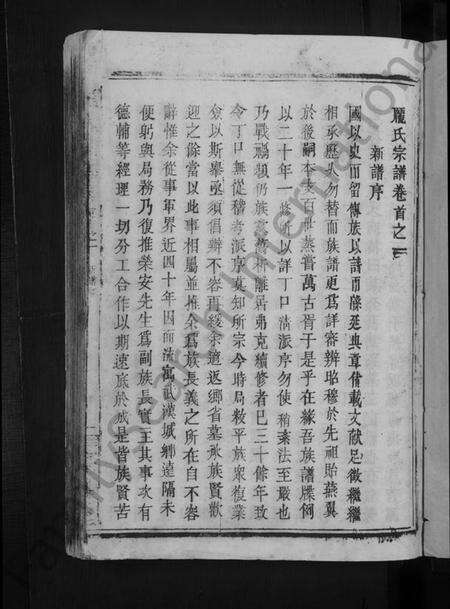 龐氏宗譜卷首之一
新譜序
國以史而留傳族以譜而蔭延典章備載文献足徵繼繼
相承歷久勿替而族譜更爲詳審辨昭穆於先祖貽燕翼
於後嗣本支百世蒸嘗萬古胥于是乎在緣吾族譜牒例
以二十年一修所以詳丁口清派序勿使稍紊法至嚴也
乃戰禍頻仍族裔分析離居弗克續修者已三十餘年致
令丁口無從稽考派序莫知所宗今時局敉平族衆復業
僉以斯舉亟須倡辦不容再緩余適返鄉省墓承族賢歡
迎之餘當以此事相屬並推余爲族長義之所在自不容
辭惟余從事軍界近四十年因而流寓武漢城鄉遠隔未
便躬與局務乃復推榮安先生爲副族長實主其事攻有
德輔等經理一切分工合作以期速底於成是皆族賢苦
FamilySearch International